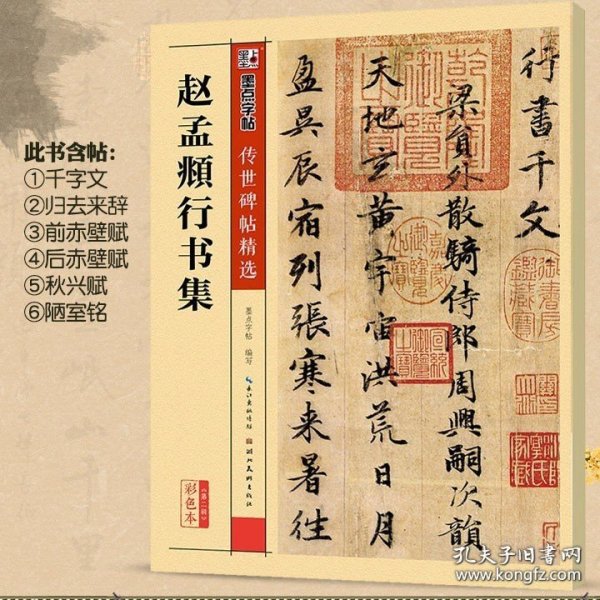 此书含帖：
①千字文
②归去来辞
③前赤壁赋
④后赤壁赋
⑤秋兴赋
⑥陋室铭
赵孟頫行书集
彩色本
《第二辑》
墨点
墨点字帖
传世碑帖精选
墨点字帖 编写
长江出版传媒
湖北美术出版社
行書千文
梁員外散騎侍郎周興嗣次韻
天地玄黄宇宙洪荒日月
盈昃辰宿列張寒来暑往
孔夫子旧书网
www.kongfz.com